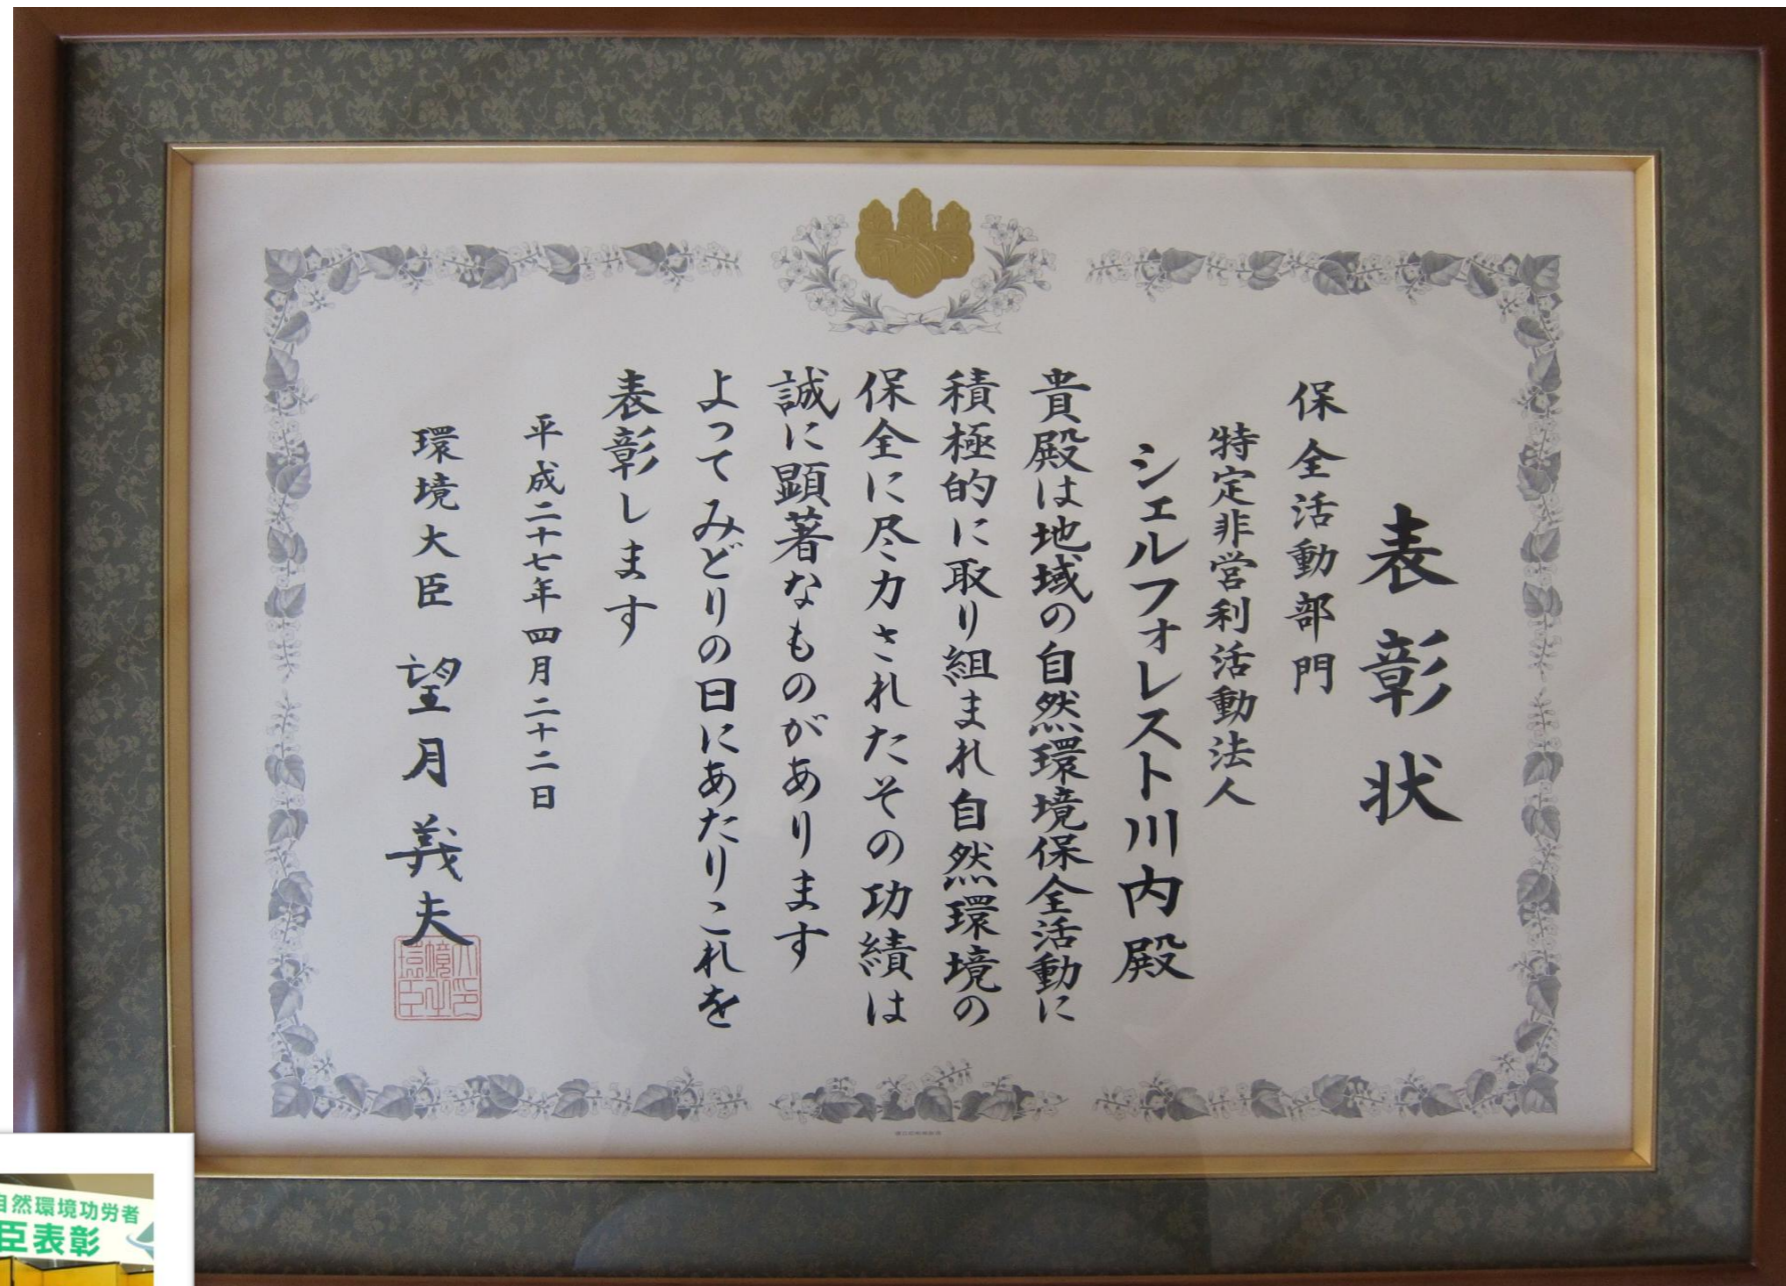 表彰状
保全活動部門
特定非営利活動法人
シェルフォレスト川内殿
貴殿は地域の自然環境保全活動に
積極的に取り組まれ自然環境の
保全に尽力されたその功績は
誠に顕著なものがあります
よってみどりの日にあたりこれを
表彰します
平成二十七年四月二十二日
環境大臣 望月義夫
自然環境功労者
臣表彰